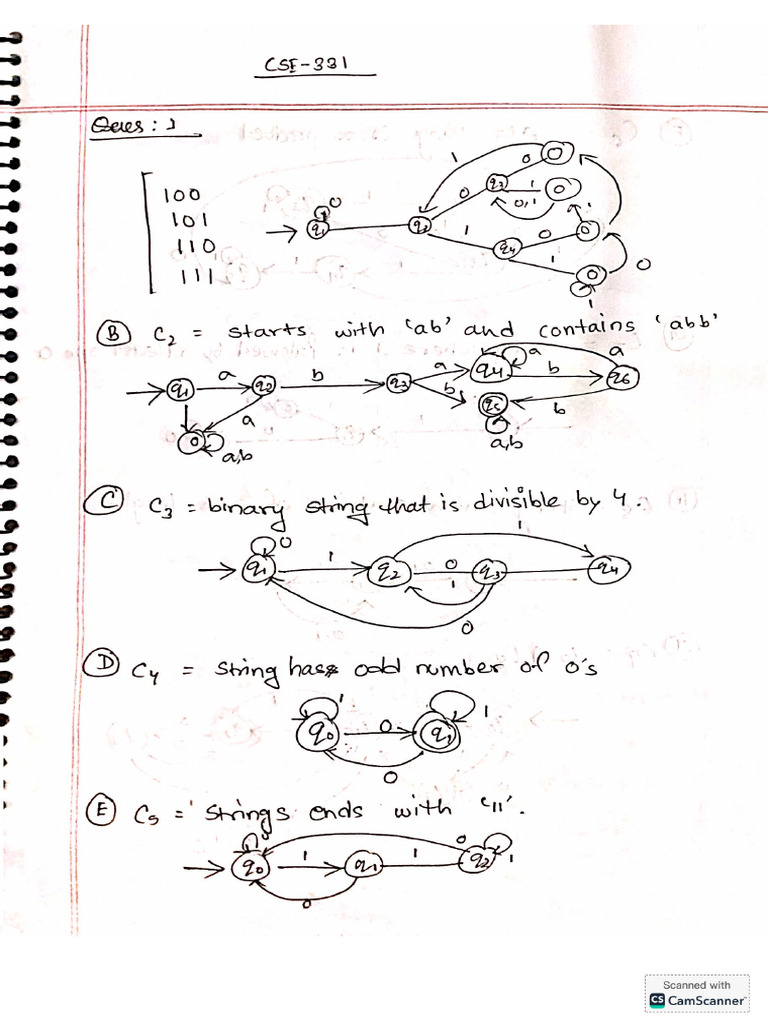 CSE-331
Ques : 1
100
101
110
111
0
q1
q2
0
1
q3
0
1
0,1
1
q4
0
1
0
1
B C2 = starts with 'ab' and contains 'abb'
q1 a q2 b q3 a q4 a b q6 a
b q5 b
a
a,b
a,b
C C3 = binary string that is divisible by 4.
0 1
q1 1 q2 0 q3 q4
1
0
D C4 = string has odd number of 0's
1 1
q0 0 q1
0
E C5 = strings ends with '11'.
0
q0 1 q1 1 q2 1
0
Scanned with
CS CamScanner